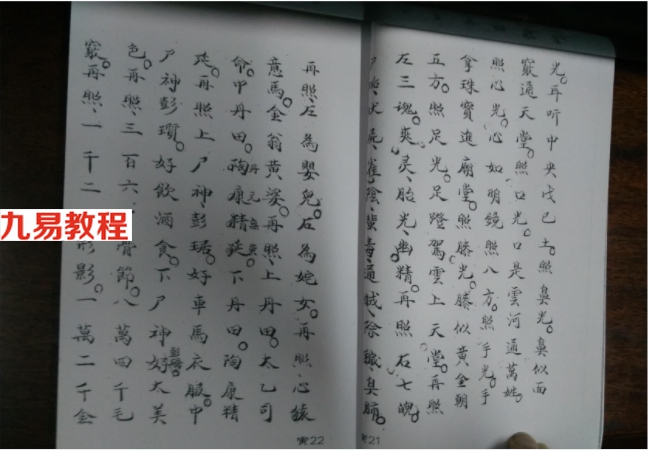 光。耳听中央戊己土。照鼻光。鼻似面
竅通天堂。照口光。口是雲河通萬姓。
照心光。心如明鏡照八方。照手光。手
拿珠寶進廟堂。照膝光。膝似黃金朝
五方。照足光。足蹬駕雲上天堂。再照
左三魂。爽灵、胎光、幽精。再照右七魄。
尸狗、伏矢、雀陰、蜚毒、通賊、除穢、臭肺。
再照、左為嬰兒。右為姹女。再照、心猿
意馬。金翁黃婆。再照、上丹田。太乙司
命。中丹田。
陶康精
延。再照上尸神。彭琚。好車馬衣服。中
尸神彭瓆。好飲酒食。下尸神
好大美
色。再照、三百六
骨節。八萬四千毛
竅。再照、一千二
形影。一萬二千金
九易教程
22
21